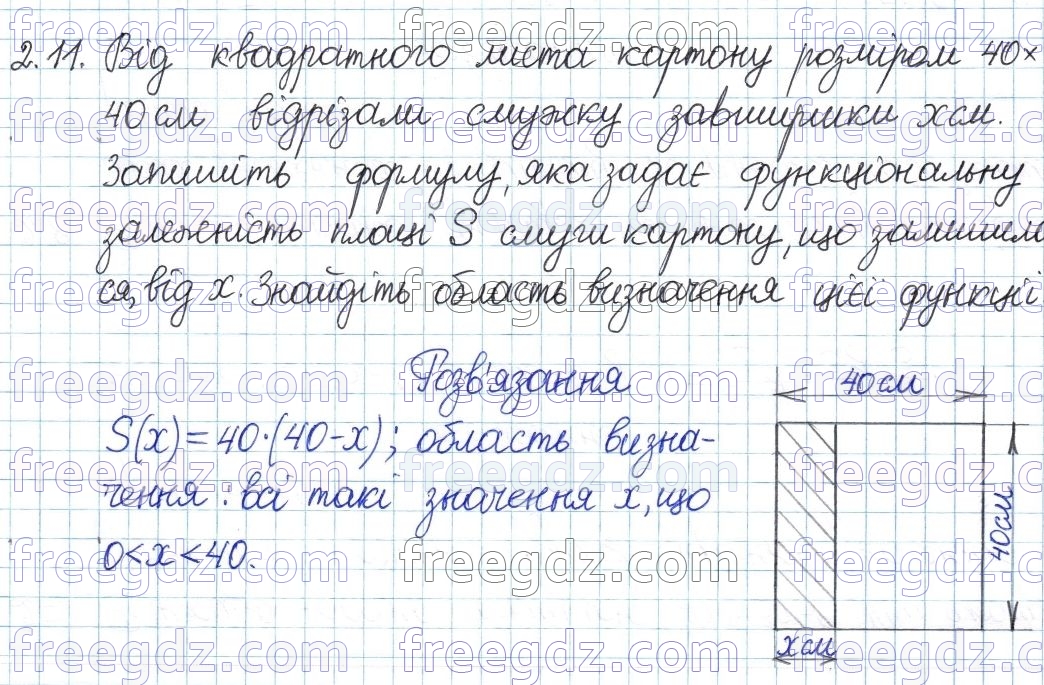 2.11. Від квадратного листа картону розміром 40×
40 см відрізали смужку завширшки x см.
Запишіть формулу, яка задає функціональну
залежність площі S смуги картону, що залишила
ся, від x. Знайдіть область визначення цієї функції
Розв'язання
40 см
S(x)=40·(40-x); область визна-
чення: всі такі значення x, що
0<x<40.
40 см
x см
freegdz.com